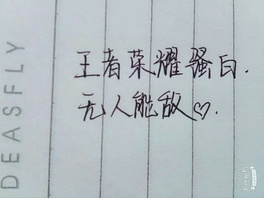 DEASFLY
王者荣耀骚白.
无人能敌♡.